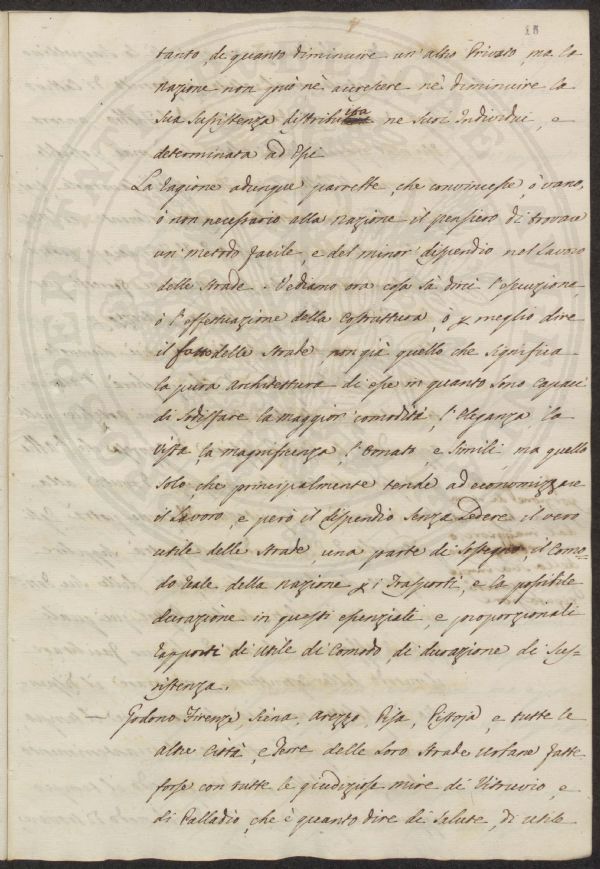 18
tanto, di quanto diminuire un'altro Privato, ma la
Nazione non può nè accrescere nè diminuire la
sua sussistenza distribuita ne suoi Individui, e
determinata ad Essi.
La Ragione adunque parrebbe, che convincesse, ò vano,
ò non necessario alla Nazione il pensiero di trovare
un metodo facile, e del minor dispendio nel lavoro
delle strade. Vediamo ora cosa sà dirci l'esecuzione
ò l'effettuazione della Costruttura, ò p meglio dire
il fatto delle strade non già quello che significa
la pura architettura di esse in quanto sono capaci
di sodisfare la maggior comodità, l'Eleganza, la
vista, la magnificenza, l'Ornato, e simili, ma quello
solo, che principalmente tende ad economizzare
il lavoro, e però il dispendio senza Ledere il vero
utile delle strade, una parte di sostegno, il Como=
do Reale della Nazione p i Trasporti, e la possibile
durazione in questi essenziali, e proporzionali
Rapporti di Utile di Comodo, di durazione di Sus=
sistenza.
Godono Firenze, Siena, Arezzo, Pisa, Pistoja, e tutte le
altre Città, e Terre delle loro Strade Urbane fatte
forse con tutte le giudiziose mire di Vitruvio, e
di Palladio, che è quanto dire di Salute, di utile